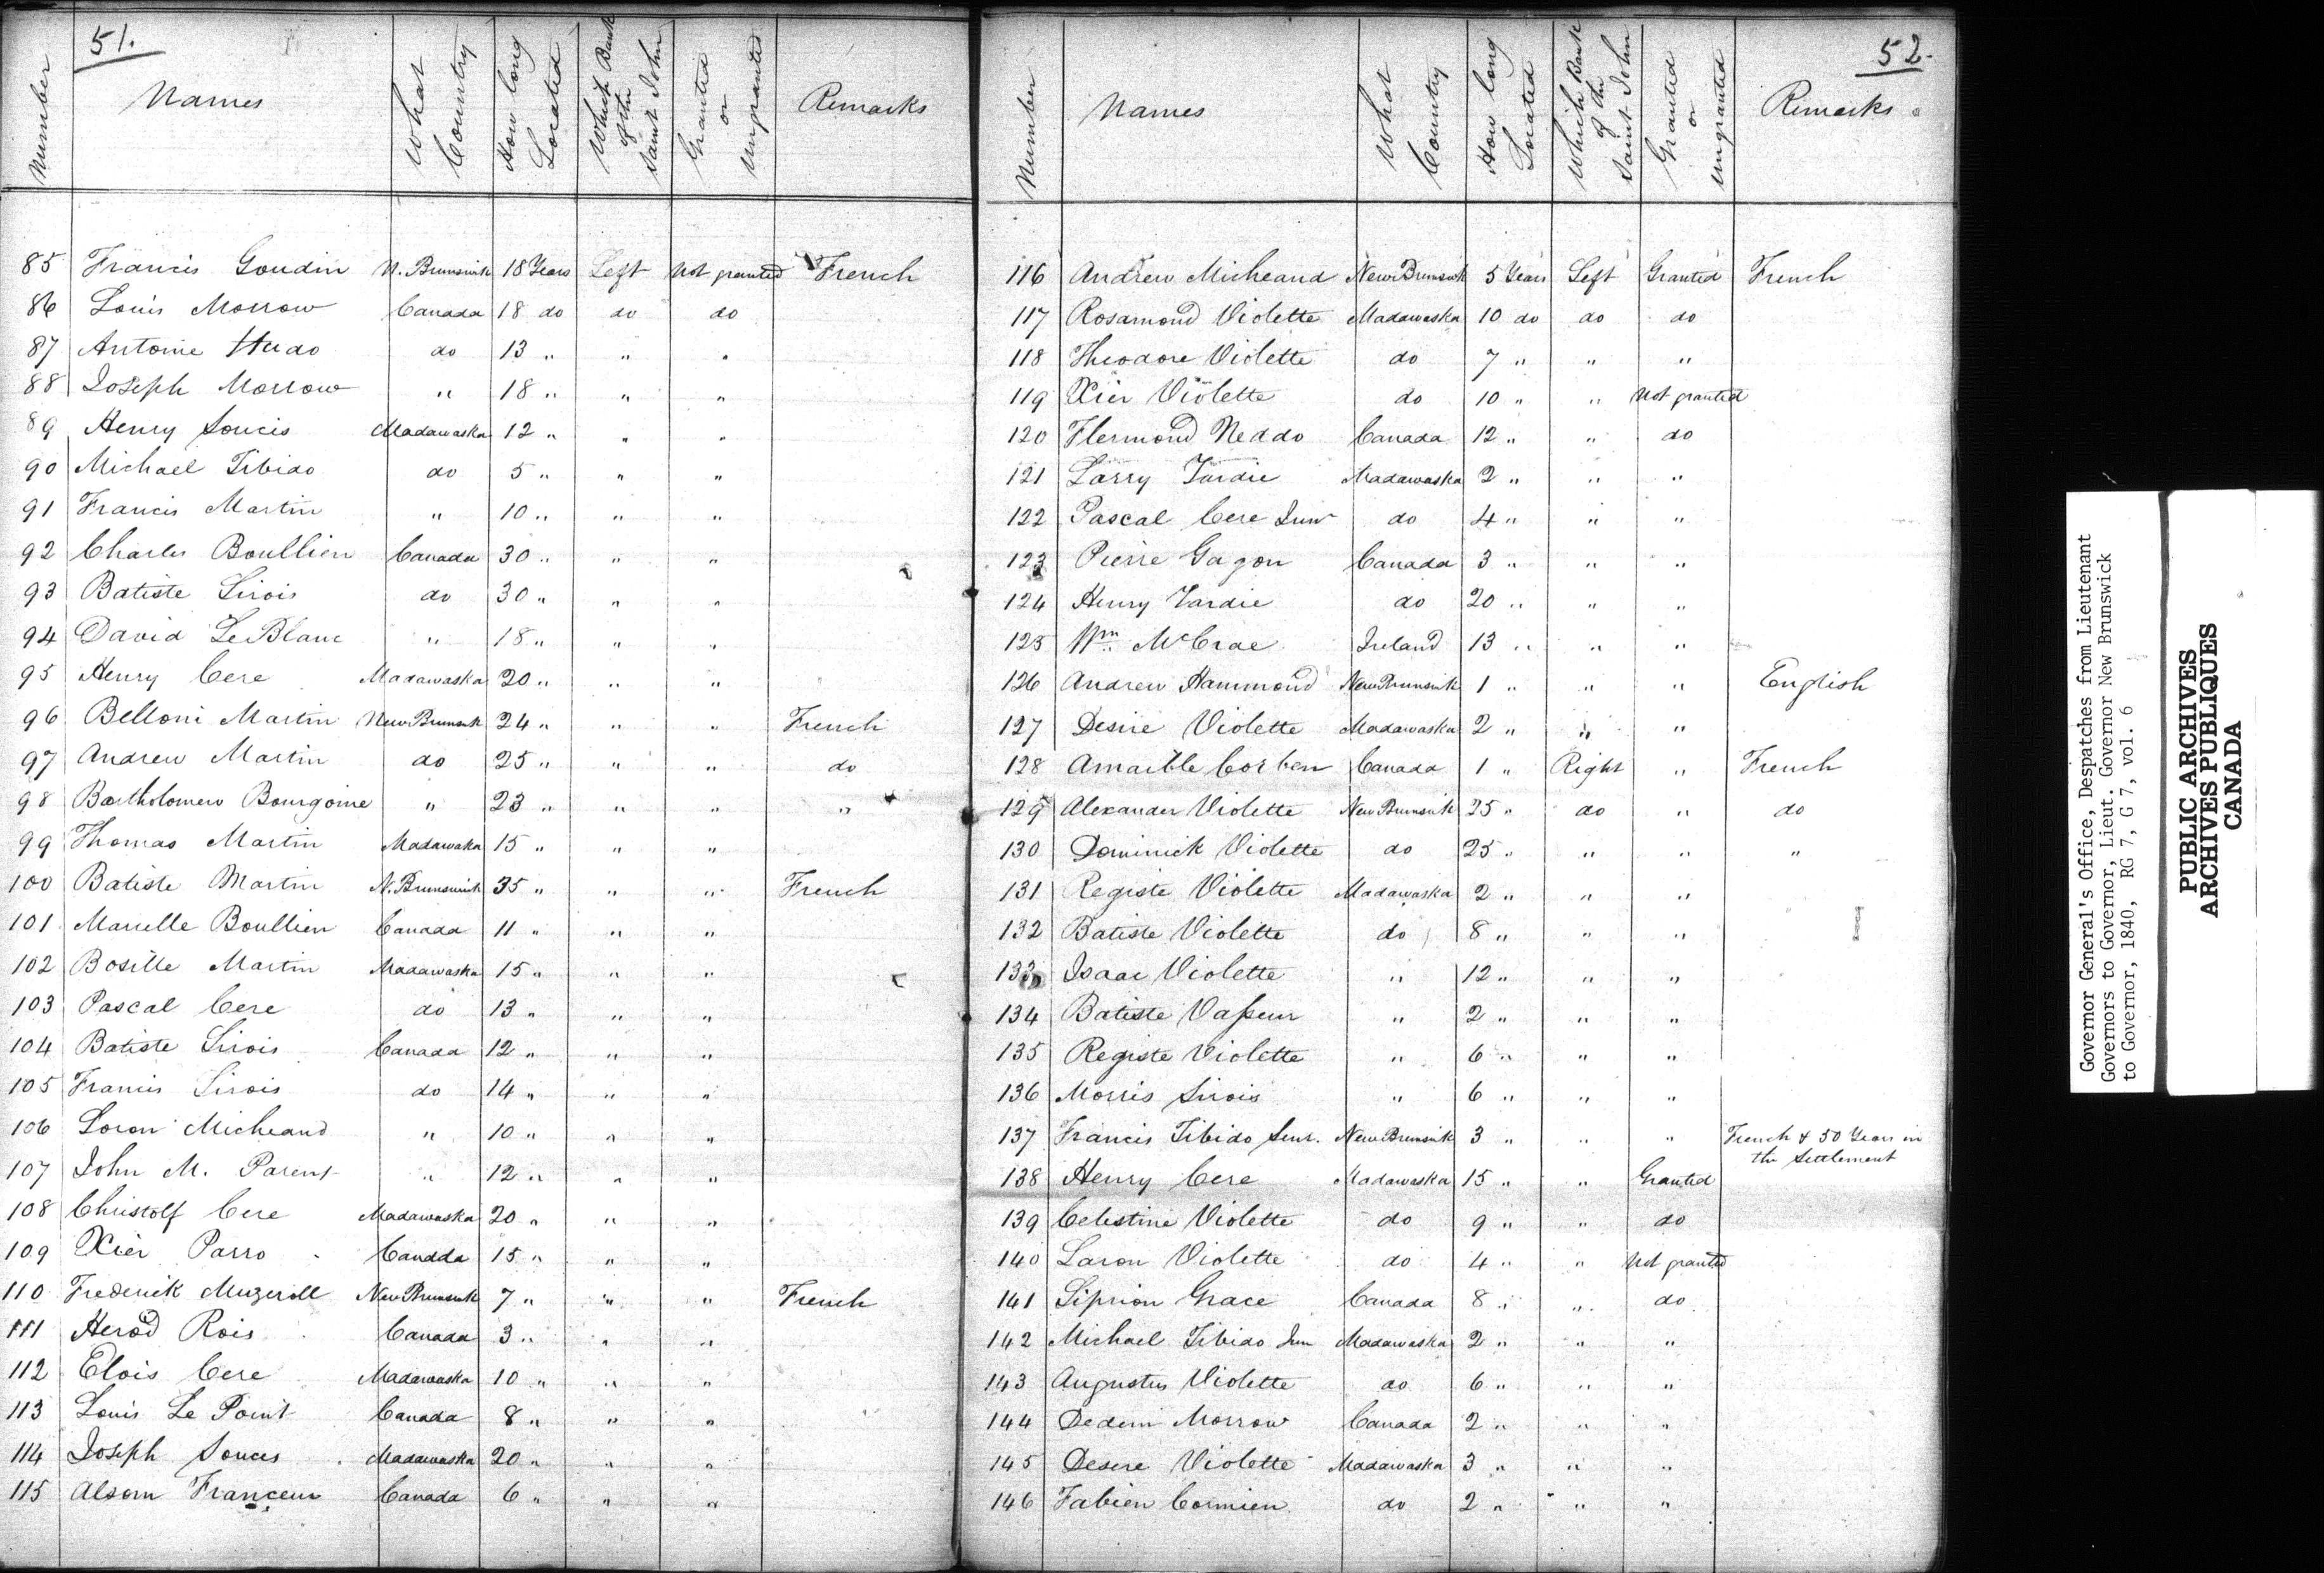 51.
Number Names What Country How long Located Which Bank of the Saint John Granted or ungranted Remarks
85 Francis Goudin N. Brunswick 18 Years Left Not granted French
86 Louis Morrow Canada 18 do do do
87 Antoine Hudo do 13 " " "
88 Joseph Morrow " 18 " " "
89 Henry Soucis Madawaska 12 " " "
90 Michael Tibido do 5 " " "
91 Francis Martin " 10 " " "
92 Charles Boullien Canada 30 " " "
93 Batiste Sirois do 30 " " "
94 David Le Blanc " 18 " " "
95 Henry Cere Madawaska 20 " " "
96 Belloni Martin New Brunswk 24 " " " French
97 Andrew Martin do 25 " " " do
98 Bartholomew Bourgoine " 23 " " " "
99 Thomas Martin Madawaka 15 " " "
100 Batiste Martin N. Brunswick 35 " " " French
101 Marcelle Boullien Canada 11 " " "
102 Bosille Martin Madawaska 15 " " "
103 Pascal Cere do 13 " " "
104 Batiste Sirois Canada 12 " " "
105 Francis Sirois do 14 " " "
106 Loron Micheaud " 10 " " "
107 John M. Parent " 12 " " "
108 Christolf Cere Madawaska 20 " " "
109 Xier Parro Canada 15 " " "
110 Frederick Muzeroll New Brunswk 7 " " " French
111 Herod Rois Canada 3 " " "
112 Elois Cere Madawaska 10 " " "
113 Louis Le Point Canada 8 " " "
114 Joseph Souces Madawaska 20 " " "
115 Alsom Franceur Canada 6 " " "
52.
Number Names What Country How long Located Which Bank of the Saint John Granted or ungranted Remarks
116 Andrew Micheaud New Brunswk 5 Years Left Granted French
117 Rosamond Violette Madawaska 10 do do do
118 Theodore Violette do 7 " " "
119 Xier Violette do 10 " " Not granted
120 Flermond Neddo Canada 12 " " do
121 Larry Tardie Madawaska 2 " " "
122 Pascal Cere Junr do 4 " " "
123 Pierre Gagon Canada 3 " " "
124 Henry Tardie do 20 " " "
125 Wm. McCrae Ireland 13 " " "
126 Andrew Hammond New Brunswk 1 " " " English
127 Desire Violette Madawaska 2 " " "
128 Amaible Corben Canada 1 " Right " French
129 Alexander Violette New Brunswick 25 " do " do
130 Dominick Violette do 25 " " " "
131 Registe Violette Madawaska 2 " " "
132 Batiste Violette do 8 " " "
133 Isaac Violette " 12 " " "
134 Batiste Vasseur " 2 " " "
135 Registe Violette " 6 " " "
136 Morris Sirois " 6 " " "
137 Francis Tibido Senr. New Brunswk 3 " " " French & 50 Years in
the Settlement
138 Henry Cere Madawaska 15 " " Granted
139 Celestine Violette do 9 " " do
140 Laron Violette do 4 " " Not granted
141 Siprion Grace Canada 8 " " do
142 Michael Tibido Jun Madawaska 2 " " "
143 Augustus Violette do 6 " " "
144 Dedem Morrow Canada 2 " " "
145 Desere Violette Madawaska 3 " " "
146 Fabien Cormien do 2 " " "
Governor General's Office, Despatches from Lieutenant
Governors to Governor, Lieut. Governor New Brunswick
to Governor, 1840, RG 7, G 7, vol. 6
PUBLIC ARCHIVES
ARCHIVES PUBLIQUES
CANADA